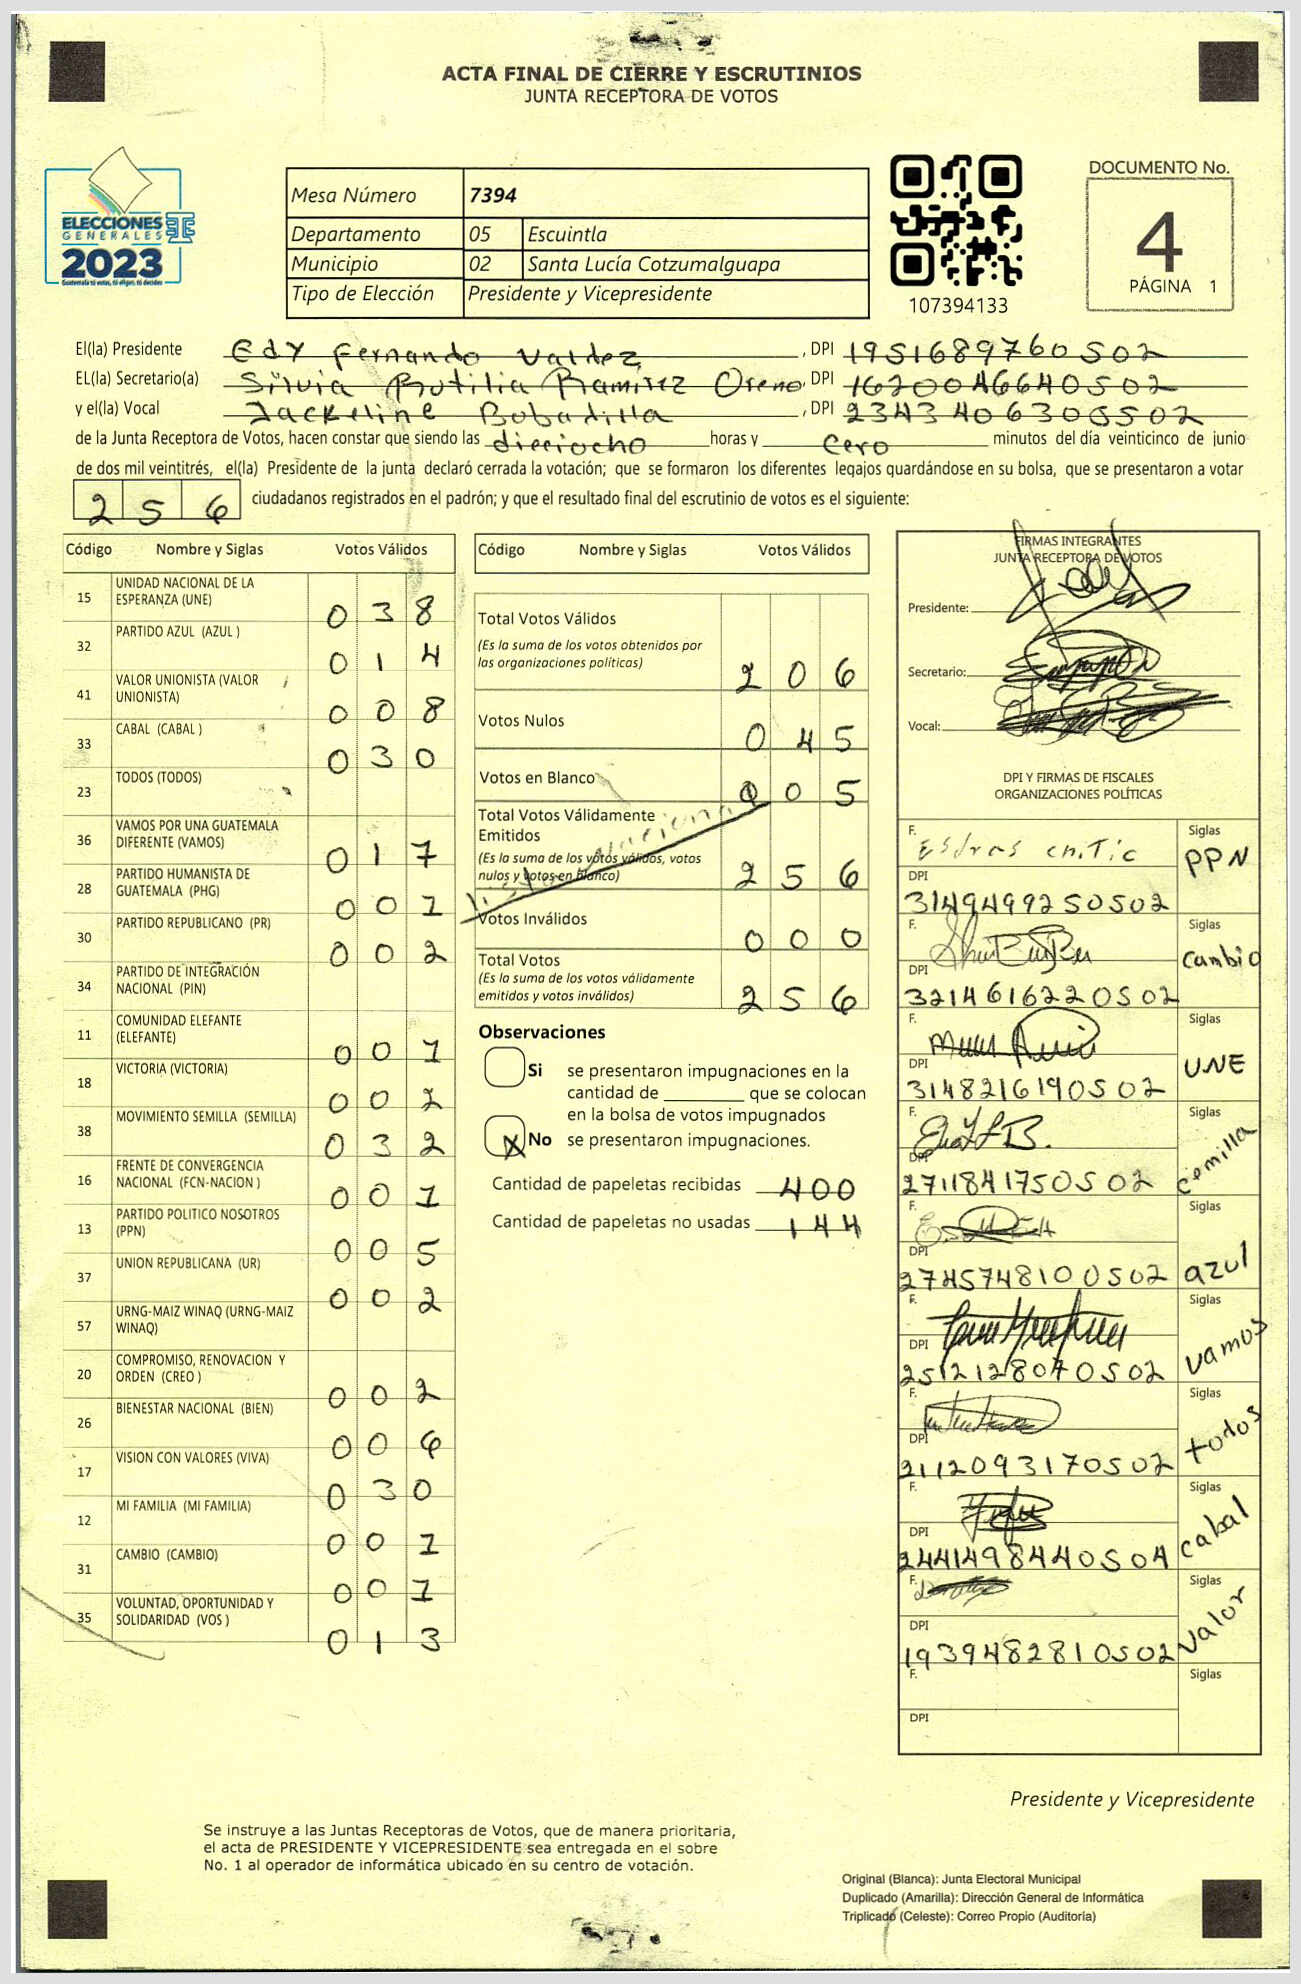 ACTA FINAL DE CIERRE Y ESCRUTINIOS
JUNTA RECEPTORA DE VOTOS
ELECCIONES
GENERALES
2023
Guatemala tú votas, tú eliges, tú decides
Mesa Número 7394
Departamento 05 Escuintla
Municipio 02 Santa Lucía Cotzumalguapa
Tipo de Elección Presidente y Vicepresidente
107394133
DOCUMENTO No.
4
PÁGINA 1
El(la) Presidente Edy Fernando Valdez, DPI 1951689760502
EL(la) Secretario(a) Silvia Rutilia Ramirez Oreno, DPI 1620046640502
y el(la) Vocal Jackeline Bobadilla, DPI 2343406300502
de la Junta Receptora de Votos, hacen constar que siendo las dieciocho horas y cero minutos del día veinticinco de junio
de dos mil veintitrés, el(la) Presidente de la junta declaró cerrada la votación; que se formaron los diferentes legajos guardándose en su bolsa, que se presentaron a votar
256 ciudadanos registrados en el padrón; y que el resultado final del escrutinio de votos es el siguiente:
Código Nombre y Siglas Votos Válidos
15 UNIDAD NACIONAL DE LA ESPERANZA (UNE) 038
32 PARTIDO AZUL (AZUL ) 014
41 VALOR UNIONISTA (VALOR UNIONISTA) 008
33 CABAL (CABAL ) 030
23 TODOS (TODOS)
36 VAMOS POR UNA GUATEMALA DIFERENTE (VAMOS) 017
28 PARTIDO HUMANISTA DE GUATEMALA (PHG) 001
30 PARTIDO REPUBLICANO (PR) 002
34 PARTIDO DE INTEGRACIÓN NACIONAL (PIN)
11 COMUNIDAD ELEFANTE (ELEFANTE) 001
18 VICTORIA (VICTORIA) 002
38 MOVIMIENTO SEMILLA (SEMILLA) 032
16 FRENTE DE CONVERGENCIA NACIONAL (FCN-NACION ) 001
13 PARTIDO POLITICO NOSOTROS (PPN) 005
37 UNION REPUBLICANA (UR) 002
57 URNG-MAIZ WINAQ (URNG-MAIZ WINAQ)
20 COMPROMISO, RENOVACION Y ORDEN (CREO ) 002
26 BIENESTAR NACIONAL (BIEN) 006
17 VISION CON VALORES (VIVA) 030
12 MI FAMILIA (MI FAMILIA) 001
31 CAMBIO (CAMBIO) 001
35 VOLUNTAD, OPORTUNIDAD Y SOLIDARIDAD (VOS ) 013
Código Nombre y Siglas Votos Válidos
Total Votos Válidos
(Es la suma de los votos obtenidos por
las organizaciones políticas) 206
Votos Nulos 045
Votos en Blanco 005
Total Votos Válidamente
Emitidos
(Es la suma de los votos válidos, votos
nulos y votos en blanco) 256
Votos Inválidos 000
Total Votos
(Es la suma de los votos válidamente
emitidos y votos inválidos) 256
Observaciones
Si se presentaron impugnaciones en la
cantidad de ________ que se colocan
en la bolsa de votos impugnados
X No se presentaron impugnaciones.
Cantidad de papeletas recibidas 400
Cantidad de papeletas no usadas 144
FIRMAS INTEGRANTES
JUNTA RECEPTORA DE VOTOS
Presidente:
Secretario:
Vocal:
DPI Y FIRMAS DE FISCALES
ORGANIZACIONES POLÍTICAS
F. Siglas PPN
DPI 3149499250502
F. Siglas Cambio
DPI 3214616220502
F. Siglas UNE
DPI 3148216190502
F. Siglas cemilla
DPI 2711841750502
F. Siglas azul
DPI 2745748100502
F. Siglas vamos
DPI 2512128070502
F. Siglas todos
DPI 2112093170502
F. Siglas cabal
DPI 2441498440504
F. Siglas valor
DPI 1939482810502
F. Siglas
DPI
Presidente y Vicepresidente
Se instruye a las Juntas Receptoras de Votos, que de manera prioritaria,
el acta de PRESIDENTE Y VICEPRESIDENTE sea entregada en el sobre
No. 1 al operador de informática ubicado en su centro de votación.
Original (Blanca): Junta Electoral Municipal
Duplicado (Amarilla): Dirección General de Informática
Triplicado (Celeste): Correo Propio (Auditoría)